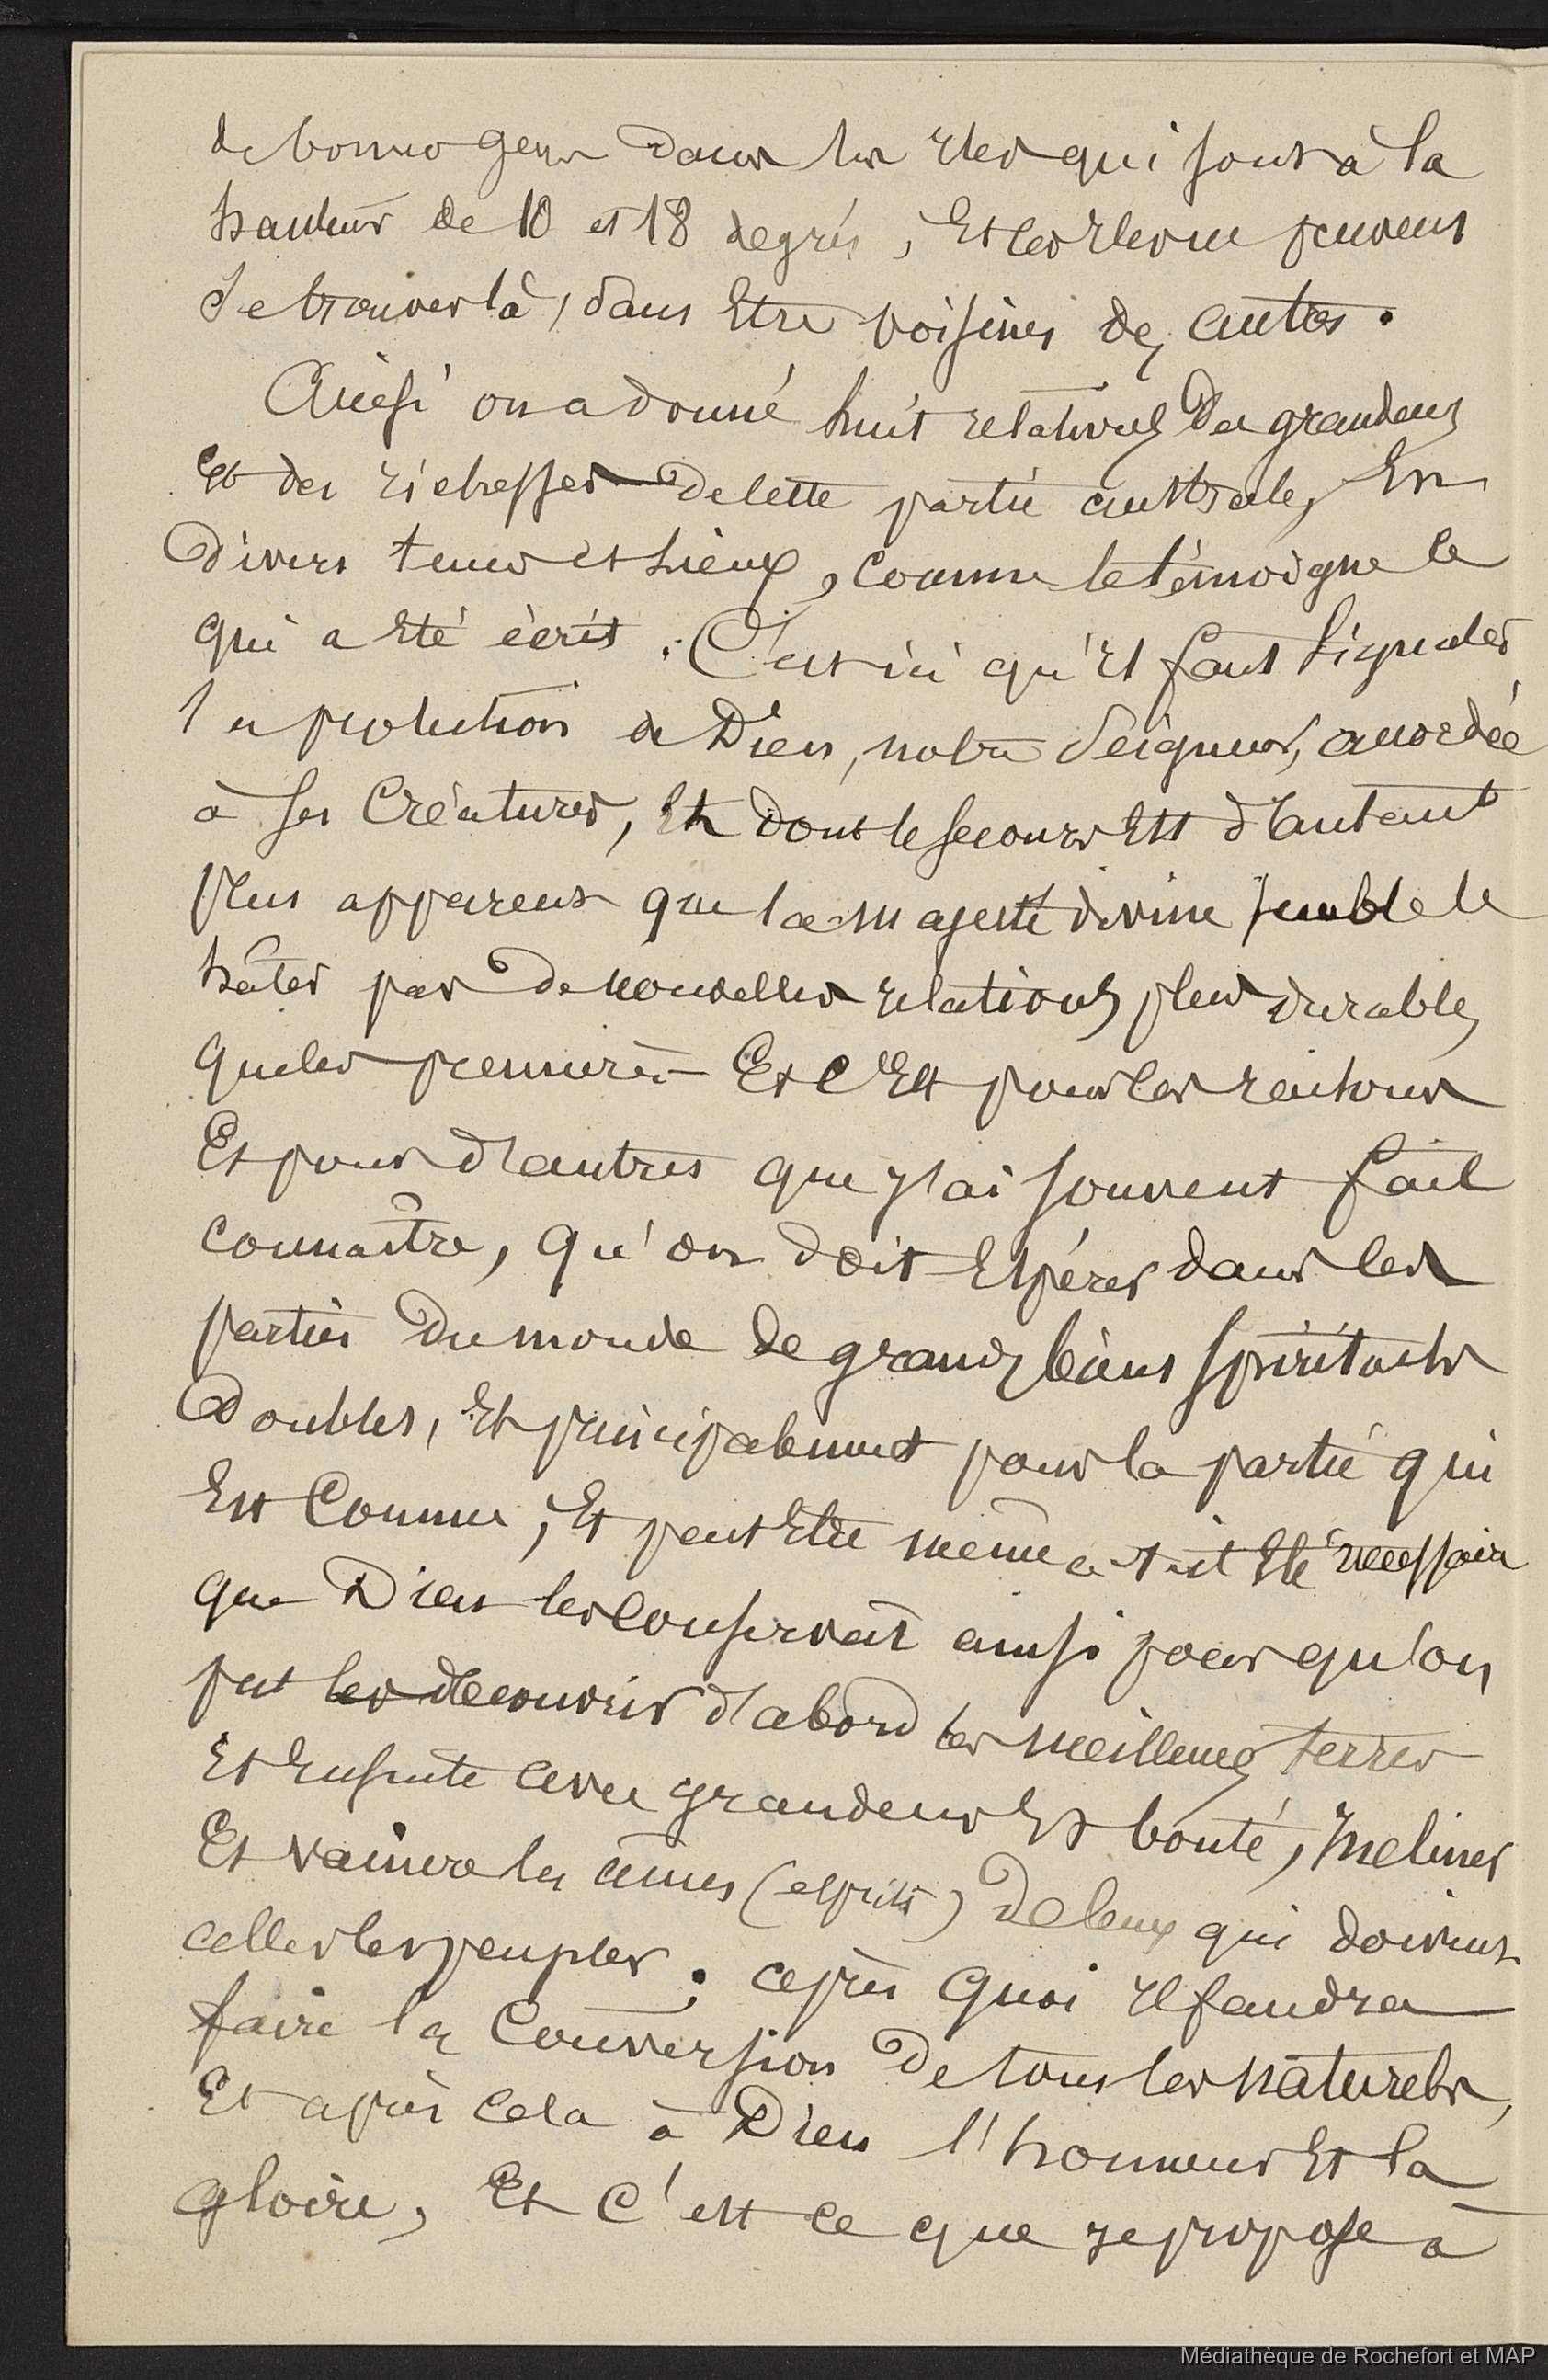 de bonnes gens dans les Iles qui sont à la
hauteur de 10 et 18 degrés, Et ces Iles ne peuvent
se trouver là, sans Etre voisines des autres.
Ainsi on a donné huit relations des grandeurs
Et des richesses de cette partie australe, En
divers tems et Lieux, comme le témoigne ce
qui a Eté écrit. C'est ici qu'Il faut signaler
la protection de Dieu, notre Seigneur, accordée
à ses Créatures, Et dont le secours Est d'autant
plus apparent que la Majesté divine semble le
hâter par de nouvelles relations plus durables
que les premières Et c'Est pour ces raisons
Et pour d'autres que j'ai souvent fait
connaître, qu'on doit Espérer dans les
parties du monde de grands biens spirituels
doubles, Et principalement pour la partie qui
Est Connue, Et peut Etre même a-t-il Eté necessaire
que Dieu les conservat ainsi pour qu'on
put les découvrir d'abord les meilleures terres
Et Ensuite avec grandeur Et bonté, Incliner
Et vaincre les âmes (esprits) de ceux qui doivent
celles les peupler; après quoi Il faudra
faire la Conversion de tous les naturels,
Et après cela à Dieu l'honneur Et la
gloire, Et c'est ce que je propose à
Médiathèque de Rochefort et MAP